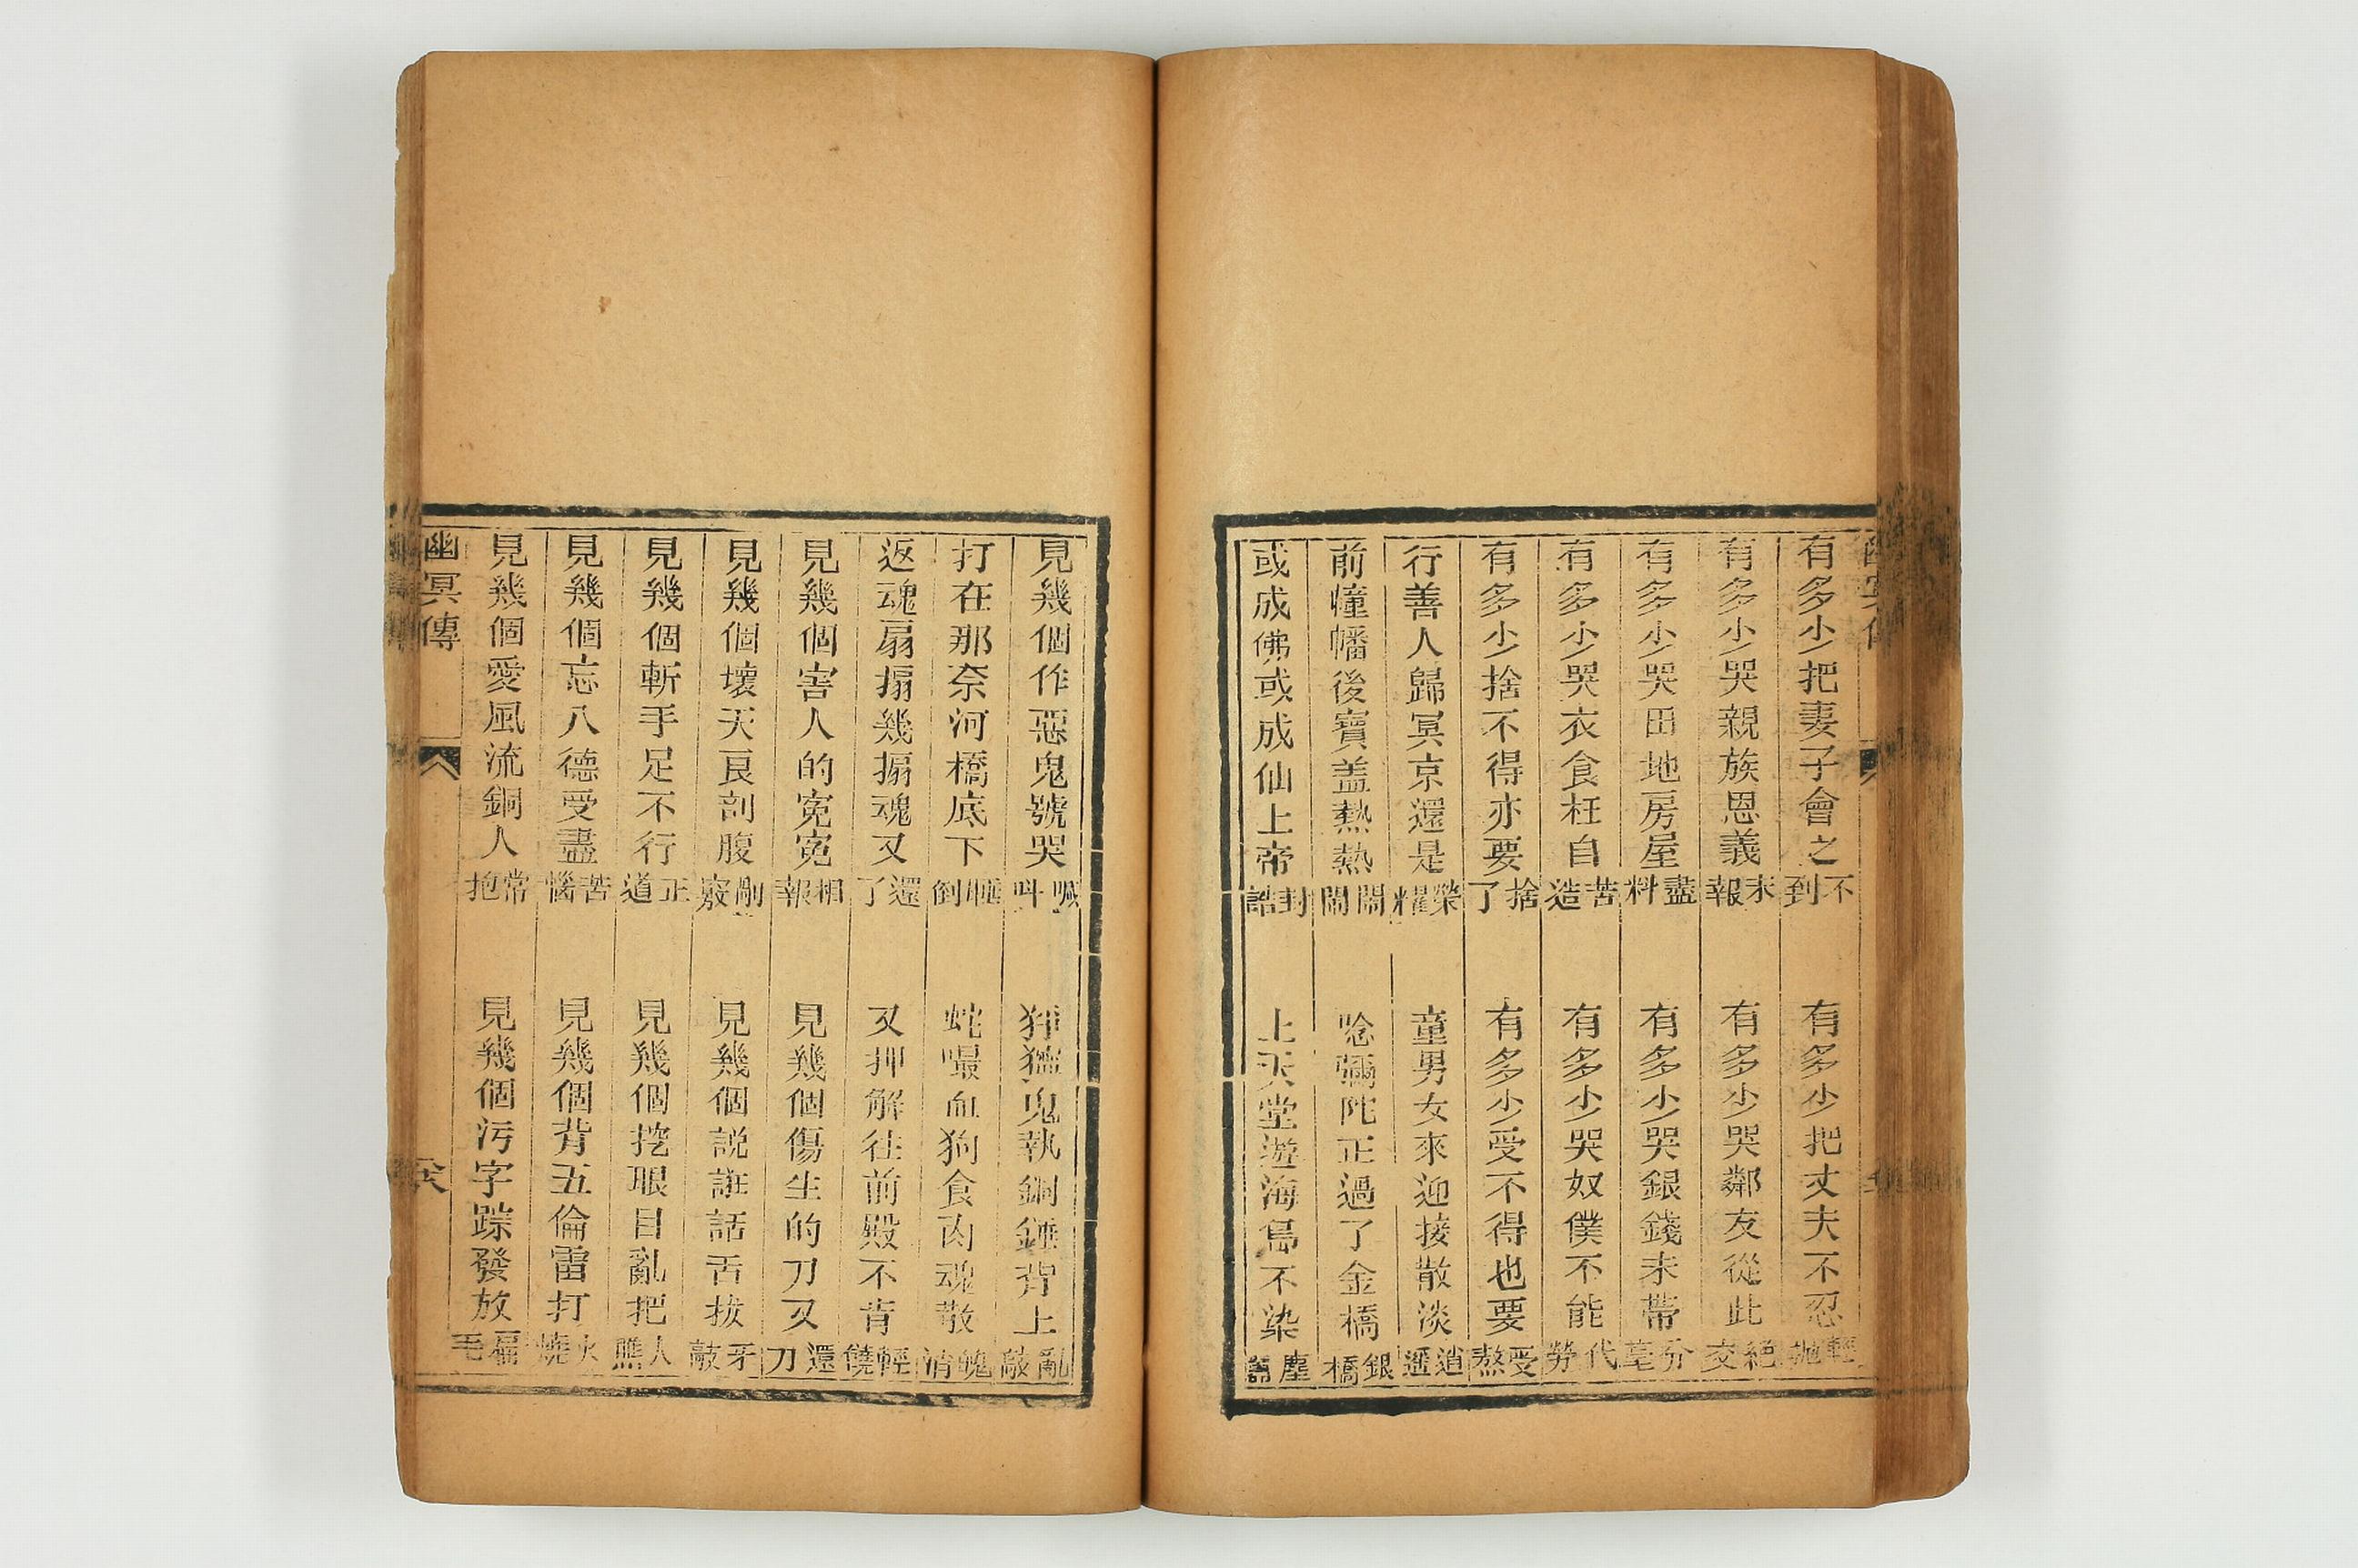 有多少把妻子會之不到　有多少把丈夫不忍輕拋
有多少哭親族恩義未報　有多少哭鄰友從此絕交
有多少哭田地房屋盡料　有多少哭銀錢未帶分毫
有多少哭衣食枉自苦造　有多少哭奴僕不能代勞
有多少捨不得亦要捨了　有多少受不得也要受熬
行善人歸冥京還是榮耀　童男女來迎接散淡逍遥
前幢幡後寶盖熱熱鬧鬧　唸彌陀正過了金橋銀橋
或成佛或成仙上帝封誥　上天堂遊海島不染塵囂
見幾個作惡鬼號哭喊叫　猙獰鬼執銅錘背上亂敲
打在那奈河橋底下睡倒　蛇嘬血狗食肉魂散魄消
返魂扇搧幾搧魂又還了　又押解往前殿不肯輕饒
見幾個害人的寃寃相報　見幾個傷生的刀又還刀
見幾個壞天良剖腹剮竅　見幾個説誑話舌拔牙敲
見幾個斬手足不行正道　見幾個挖眼目亂把人瞧
見幾個忘八德受盡苦惱　見幾個背五倫雷打火燒
見幾個愛風流銅人常抱　見幾個污字跡發放福毛
幽冥傳
六